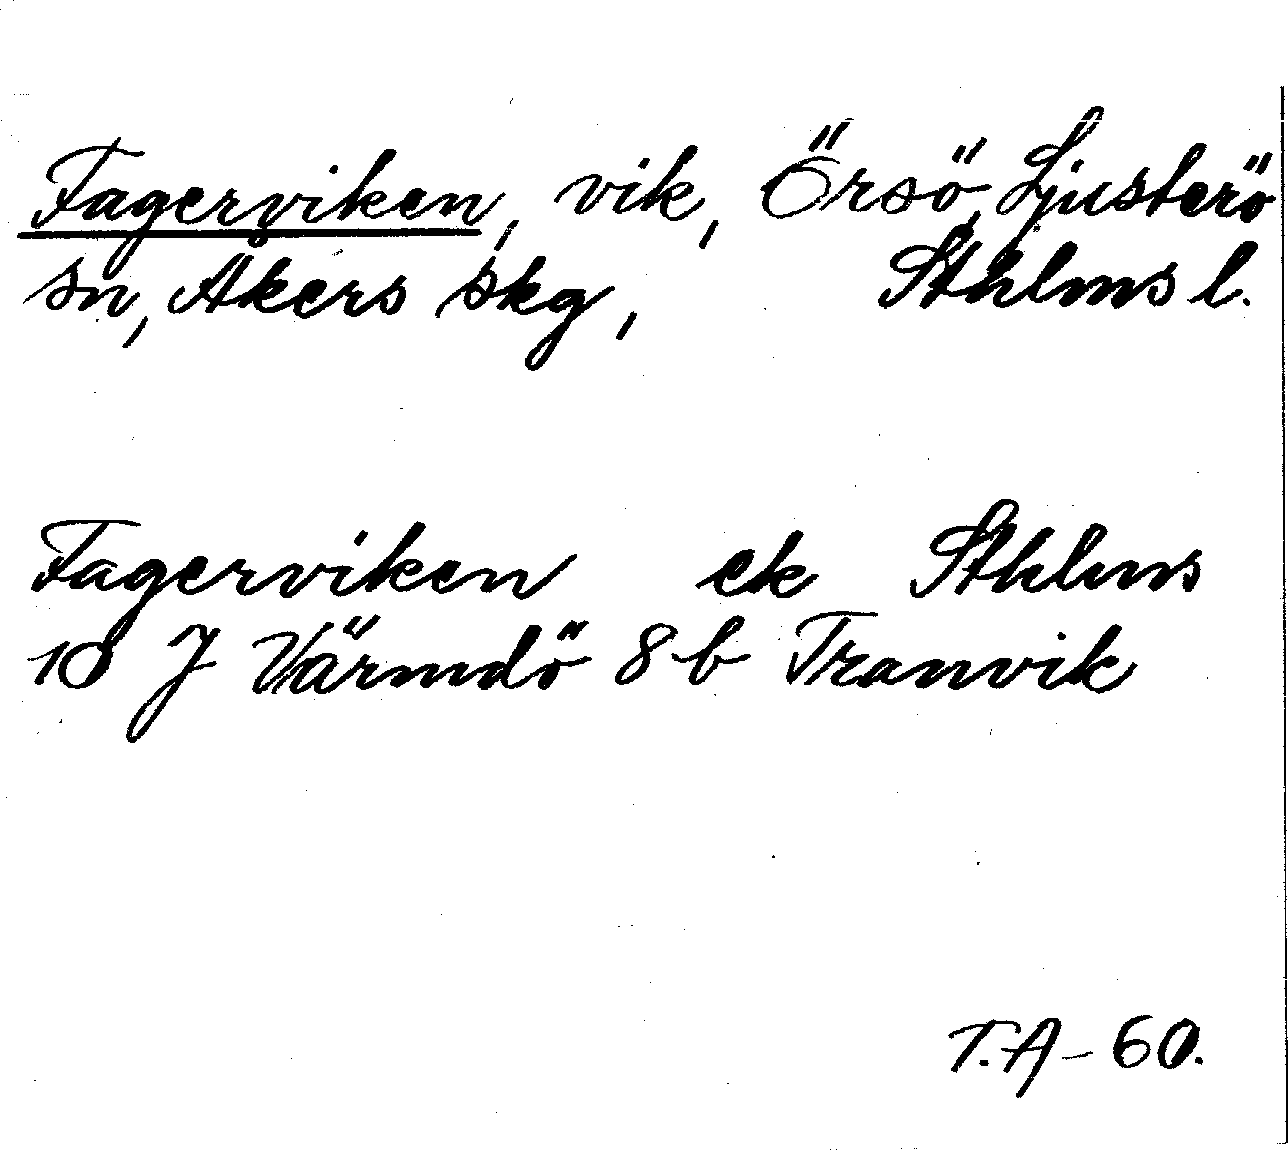 Fagerviken, vik, Örsö, Ljusterö
sn, Åkers skg, Sthlms l.
Fagerviken ek Sthlms
10 J Värmdö 8 b Tranvik
T.A-60.